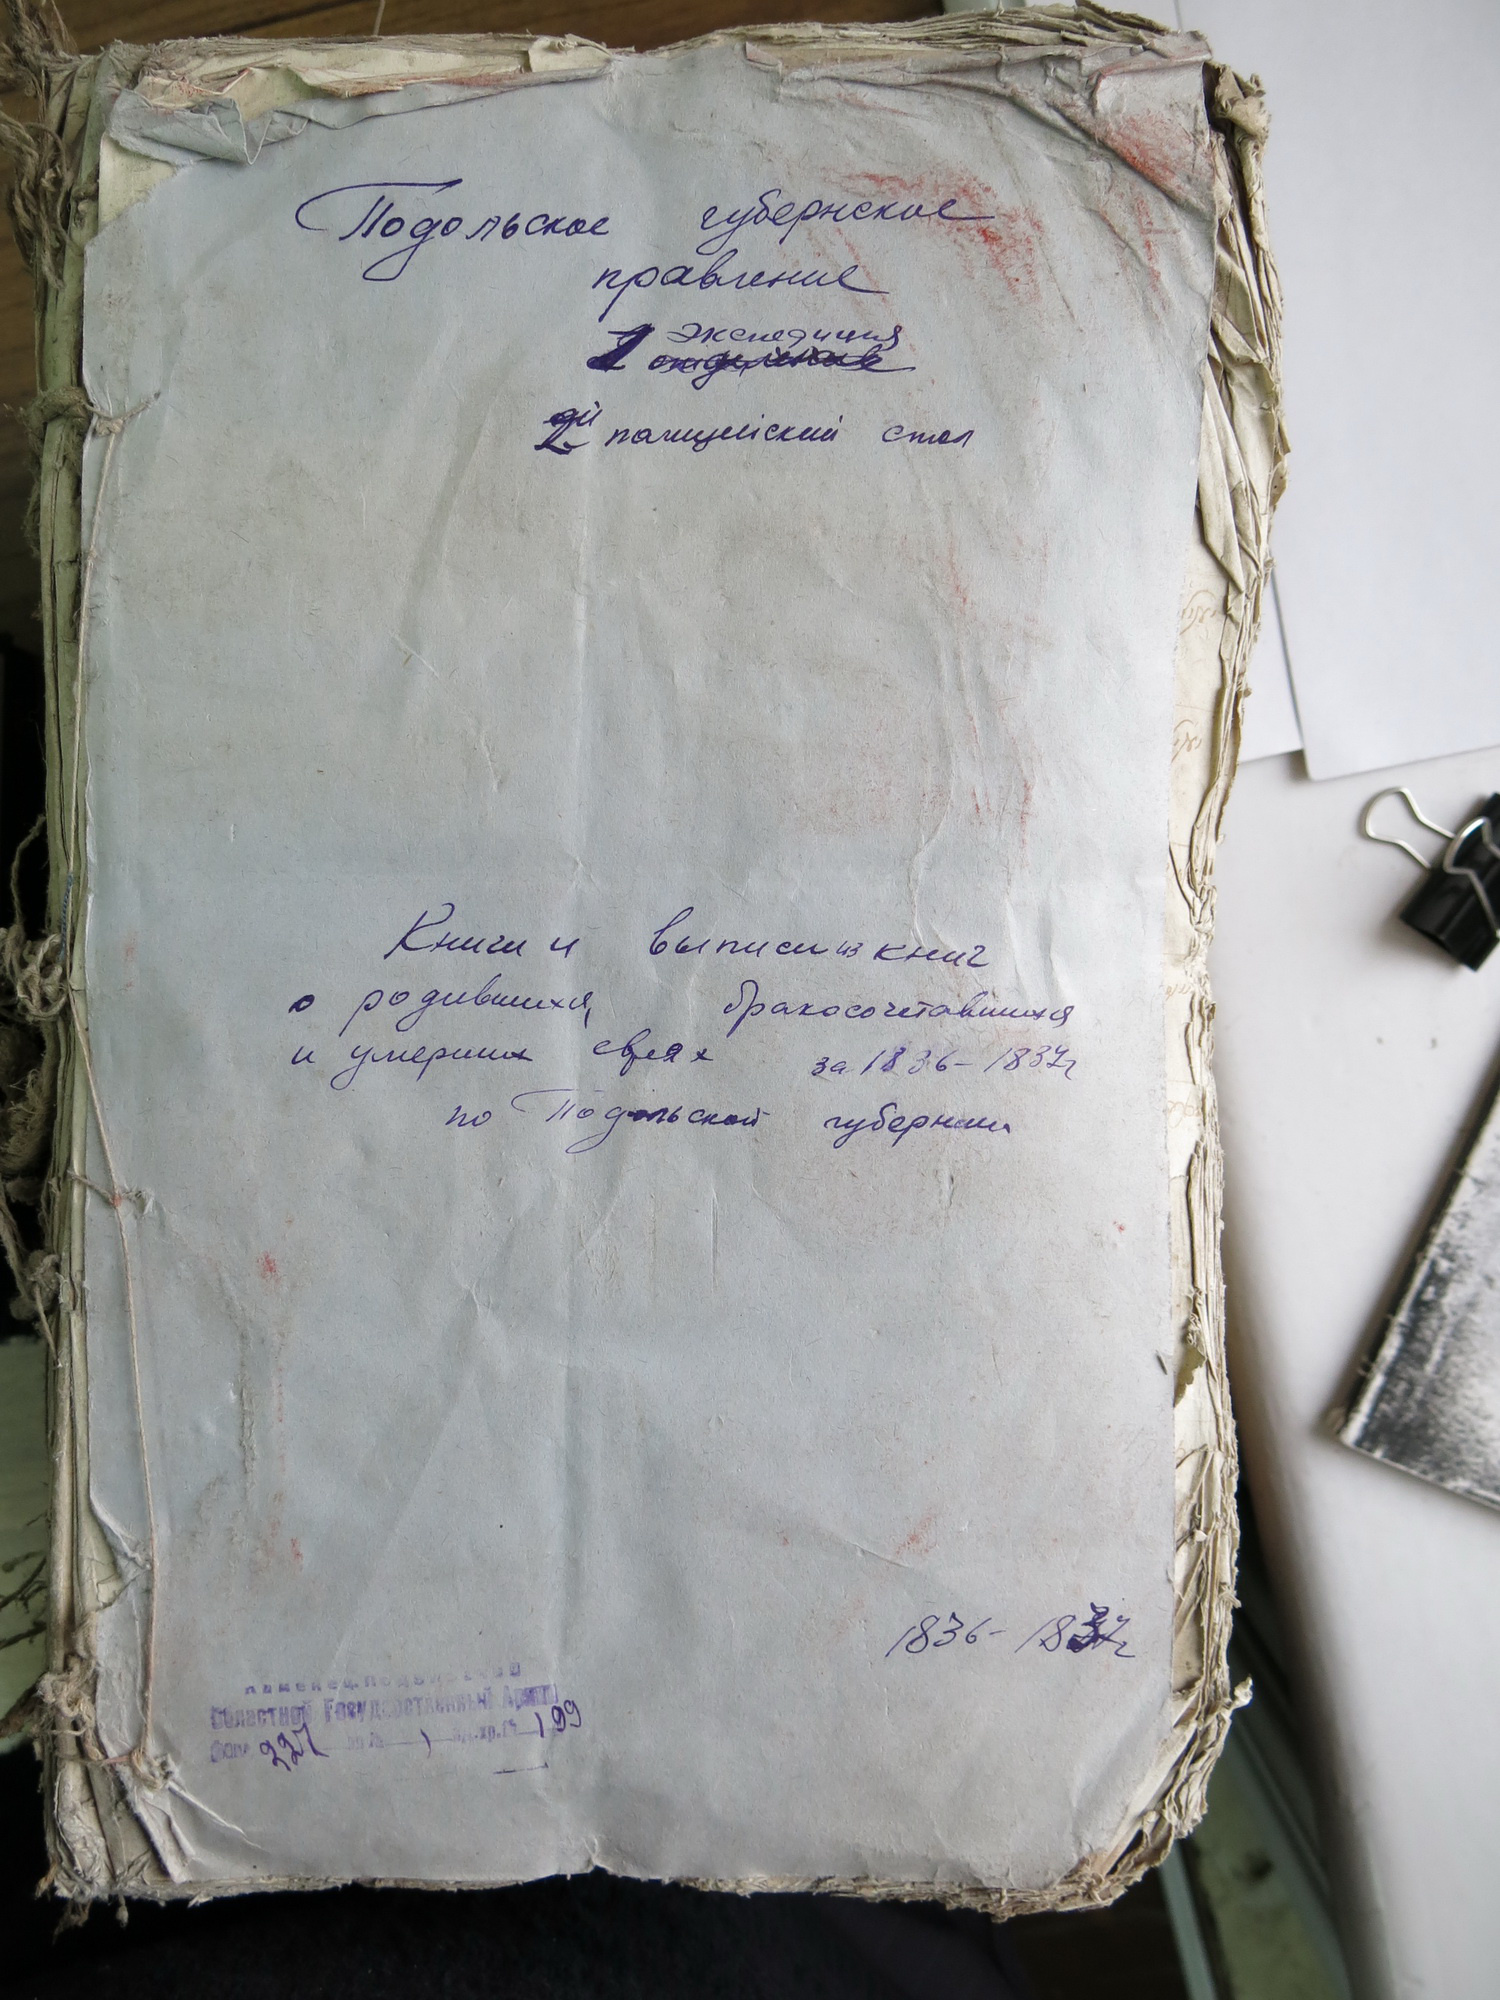 Подольское губернское
правление
1 экспедиция
отделение
2й полицейский стол
Книги и выписи из книг
о родившихся, бракосочетавшихся
и умерших евреях за 1836-1837г
по Подольской губернии
1836-1837г
Каменец-Подольский
Областной Государственный Архив
Фонд 227 оп № 1 ед.хр.№ 199